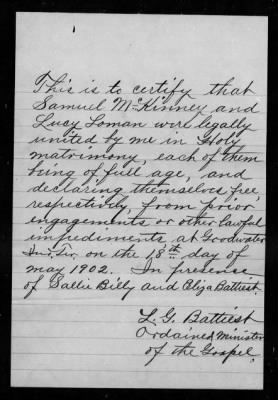 This is to certify that
Samuel McKinney and
Lucy Loman were legally
united by me in Holy
matrimony, each of them
being of full age, and
declaring themselves free
respectively, from prior
engagements or other lawful
impediments at Goodwater
Ind. Ter. on the 18th day of
may 1902. In presence
of Sallie Billy and Eliza Battiest.
L. G. Battiest
Ordained Minister
of the Gospel.